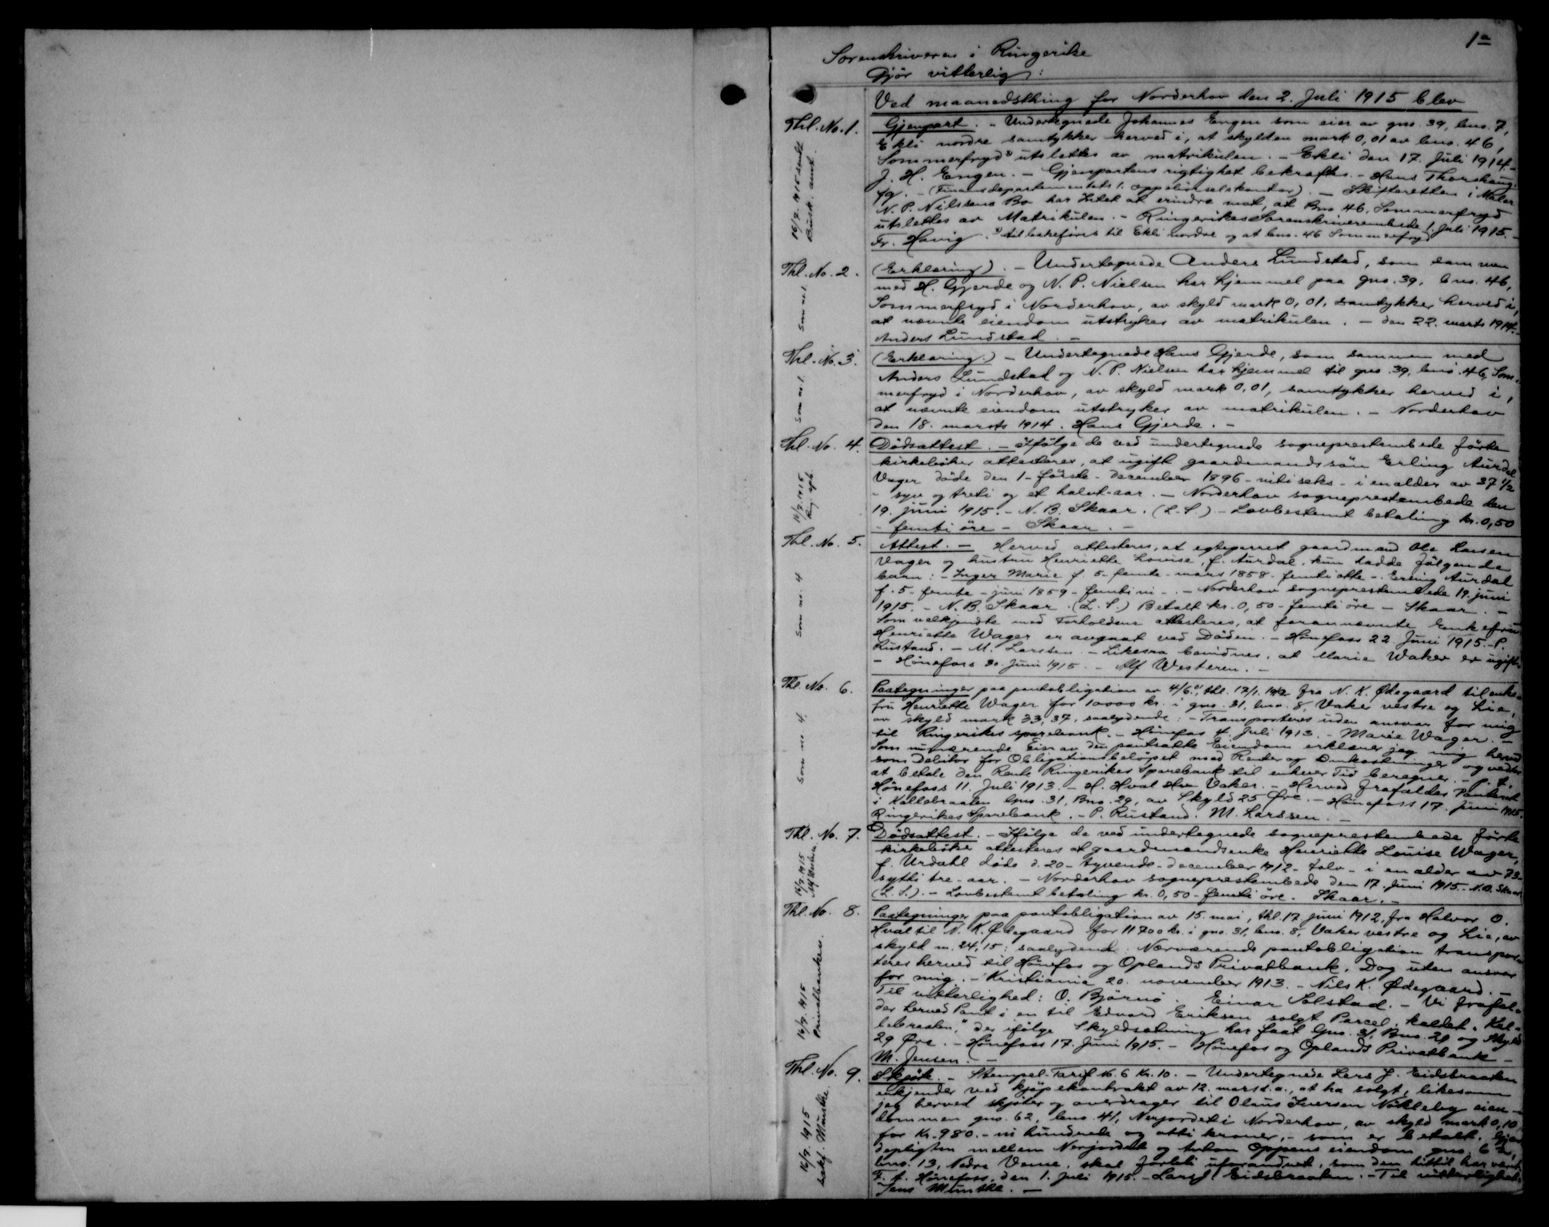 1a
Sorenskriveren i Ringerike
Gjør vitterlig:
Ved maanedsthing for Norderhov den 2. Juli 1915 blev
Thl. No. 1.
Gjenpart. - Undertegnede Johannes Engen som eier av gno. 39, bno. 7,
Ekli nordre samtykker herved i, at skylden mark 0,01 av bno. 46,
Sommerfryd utslettes av matrikulen. - Ekli den 17. Juli 1914 -
J. H. Engen. - Gjenpartens rigtighet bekræftes. - Hans
fg. - (Finansdepartementets 1. oppebørselskontor). - Skifteretten i
N. P. Nilssens Bo har Intet at erindre mot, at Bno 46, Sommerfryd
utslettes av Matrikulen. - Ringerikes Sorenskriverembede 1 Juli 1915. -
Fr. Havig. til Ekli nordre og at bno. 46 Sommerfryd
16/7. 1915 sendt
Busk. amt.
Thl. No. 2.
(Erklæring). - Undertegnede Anders Lundstad, som sammen
med H. Gjerde og N. P. Nielsen har hjemmel paa gno. 39, bno. 46,
Sommerfryd i Norderhov, av skyld mark 0,01, samtykker herved i,
at nævnte eiendom utstrykes av matrikulen. - den 22. marts 1914. -
Anders Lundstad. -
Som nr. 1.
Thl. No. 3.
(Erklæring.) - Undertegnede Hans Gjerde, som sammen med
Anders Lundstad og N. P. Nielsen har hjemmel til gno. 39, bno. 46, Som-
merfryd i Norderhov, av skyld mark 0,01, samtykker herved i,
at nævnte eiendom utstryker av matrikulen. - Norderhov
den 18. marts 1914. Hans Gjerde. -
Som nr. 1.
Thl. No. 4.
Dødsattest. - Ifølge de ved undertegnede sogneprestembede førte
kirkebøker attesteres, at ugift gaardmandssøn Erling Aurdal
Vager døde den 1 - første - december 1896 - niti seks - i en alder av 37 1/2
- syv og treti og et halvt - aar. - Norderhov sogneprestembede den
19. juni 1915. - N. B. Skaar. (L. S.) - Lovbestemt betaling kr. 0,50
- femti øre - Skaar. -
Thl. No. 5.
Attest. - Herved attesteres, at egteparret gaardmand Ole Larsen
Vager og hustru Henriette Lovise, f. Aurdal, kun hadde følgende
barn: - Inger Marie f. 5 - femte - mars 1858 - femti otte - Erling Aurdal
f. 5 - femte - juni 1859 - femti ni. - Norderhov sogneprestembede 19. juni
1915. - N. B. Skaar. (L. S.) Betalt kr. 0,50 - femti øre - Skaar. -
Som velkjendte med Forholdene attesteres, at forannævnte Enkefrue
Henriette Wager er avgaat ved Døden. - Hønefoss 22 Juni 1915. P.
Rustand. - M. Larssen. - Likesaa bevidnes, at Marie Waker er ugift.
- Hønefoss 30. Juni 1915. - Alf Westeren. -
Som nr. 4
Thl. No. 6.
Paategninger paa pantobligation av 4/6, thl. 12/1. fra N. K. Ødegaard til enke-
fru Henriette Wager for 10000 kr. i gno. 31, bno. 8, Vaker vestre og Lie,
av skyld mark 33,37, saalydende: - Transporteres uden ansvar for mig
til Ringerikes sparebank. - Hønefos 4. Juli 1913. - Marie Wager. -
Som nuværende Eier av den pantsatte Eiendom erklærer jeg mig herved
som Debitor for Obligationsbeløpet med Renter og Omkostninger og vedtar
at betale den Rente Ringerikes Sparebank til enhver Tid beregner. -
Hønefoss 11. Juli 1913. - H. Hval Vaker. - Herved frafaldes Panteret
i Kallebraaten Gno. 31, Bno. 29, av Skyld 25 Øre. - Hønefoss 17. juni 1915.
Ringerikes Sparebank. - P. Rustand. M. Larssen. -
Som nr. 4.
Thl. No. 7.
Dødsattest. - Ifølge de ved undertegnede sogneprestembede førte
kirkebøker attesteres at gaardmandsenke Henriette Louise Wager,
f. Urdahl døde d. 20 - tyvende - december 1912 - tolv - i en alder av 73 -
sytti tre - aar. - Norderhov sogneprestembede den 17. juni 1915. - N. B. Skaar
(L. S.). - Lovbestemt betaling kr. 0,50 - femti øre. Skaar. -
Thl. No. 8.
Paategninger paa pantobligation av 15 mai, thl. 17 juni 1912, fra Halvor O.
Hval til N. K. Ødegaard for 11700 kr. i gno 31, bno. 8, Vaker vestre og Lie, av
skyld m. 24,15, saalydende: Nærværende pantobligation transpor-
teres herved til Hønefos og Oplands Privatbank. Dog uten ansvar
for mig. - Kristiania 20. november 1913. - Nils K. Ødegaard. -
Til vitterlighet: O. Bjørnø. Einar Solstad. - Vi frafal-
der herved Pant i en til Edvard Eriksen solgt Parcel, kaldet "Kal-
lebraaten," der ifølge Skyldsætning har faat Gno. 31, Bno. 29 og Skyld
29 Øre. - Hønefoss 17. Juni 1915. - Hønefos og Oplands Privatbank -
M. Jensen. -
16/7. 1915
Privatbanken.
Thl. No. 9.
Skjøt. - Stempel. Tarif St. 6 Kr. 10. - Undertegnede Lars J. Eidsbraaten
erkjender ved kjøpekontrakt av 12. mars d. a., at ha solgt, likesom
jeg herved skjøter og overdrager til Olaus Iversen Nikleby eien-
dommen gno. 62, bno. 41, Nerjordet i Norderhov, av skyld mark 0,10
for Kr. 980. - ni hundrede og otti kroner, - som er betalt.
mellem Nerjordet og Anton Oppens eiendom gno. 62,
bno. 13, Nedre Verne, skal forbli uforandret, som den hittil har været.
F. t. Hønefoss, den 1. juli 1915. - Lars J. Eidsbraaten. - Til vitterlighet:
Jens Münthe. -
16/7. 1915
Münthe.